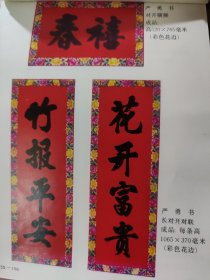 春禧
严 勇 书
对开横额
成品:
×765毫米
(彩色花边)
花开富贵
竹报平安
严 勇 书
长对开对联
成品: 每条高
1065×370毫米
(彩色花边)